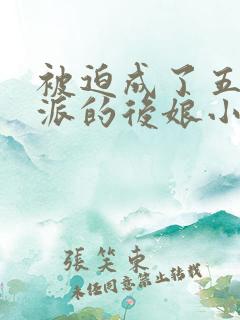 被迫成了五
派的後娘小
張笑東
未经同意禁止转载